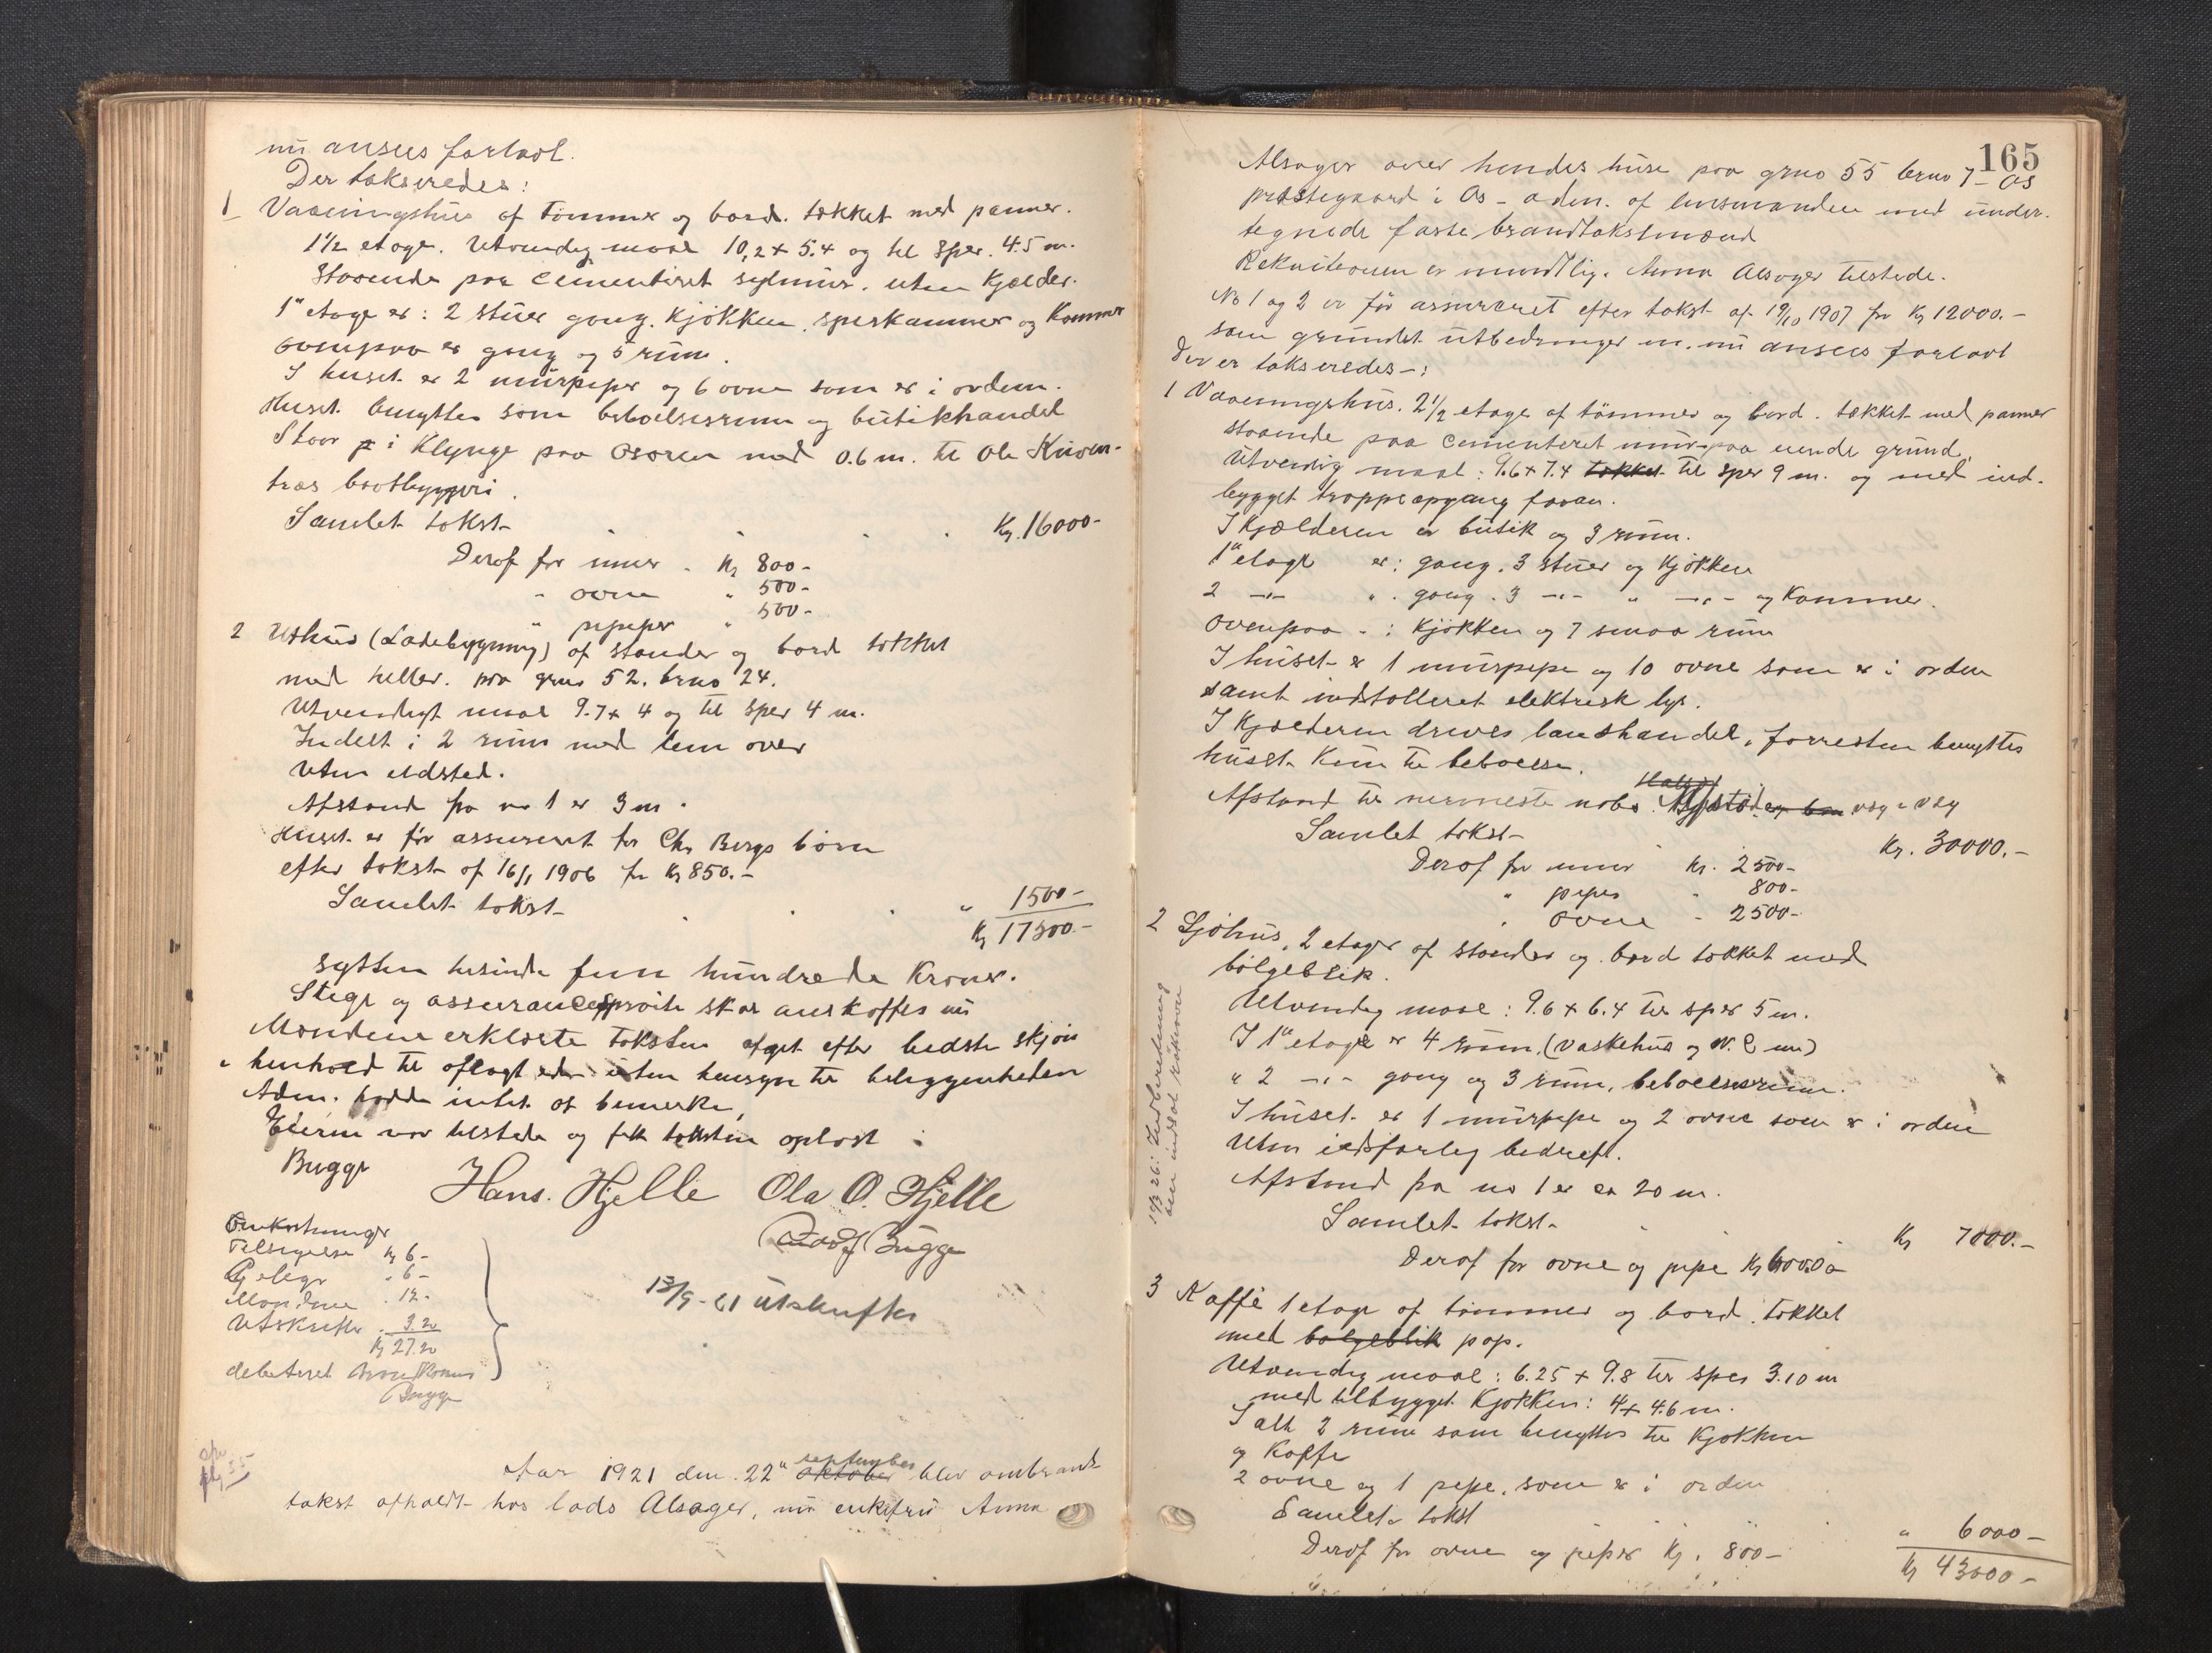 nu ansees forlavt.
Der takseredes:
1 Vaaningshus af tømmer og bord. tækket med panner.
1½ etage. Utvendig maal 10,2 + 5.4 og til sper. 4.5 m.
Staaende paa cementeret sylmur. uten kjælder.
1ste etage er: 2 stuer gang. kjøkken, spiskammer og kammer
ovenpaa er gang og 5 rum.
I huset er 2 murpiper og 6 ovne som er i orden.
Huset benyttes som beboelsesrum og butikhandel
Staar i klynge paa Osøren med 0.6 m. til Ole Kuven-
træs baatbyggeri.
Samlet takst Kr. 16000-
Derof for mur - Kr 800-
" ovne " 500-
" piper " 500-
2 Uthus (Ladebygning) af stender og bord tækket
med heller. paa gno 52. brno 24.
Utvendigt maal 9.7 + 4 og til sper 4 m.
Indelt i 2 rum med lem over
Uten ildsted.
Afstand fra no 1 er 3 m.
Huset er før assureret for Chr Bergs børn
efter takst af 16/1 1906 for Kr 850.-
Samlet takst " 1500-
Kr 17500.-
sytten tusinde fem hundrede Kroner.
Stige og assurancesprøite skal anskaffes nu
Mændene erklærte taksten afgit efter bedste skjøn
i henhold til aflagt ed uten hensyn til beliggenheden
Adm. hadde intet at bemerke,
Eieren var tilstede og fik taksten oplæst
Bugge Hans. Hjelle Ola O. Hjelle
Adolf Bugge
Omkostninger
Tilsigelse Kr 6-
" 6-
Mændene " 12-
Utskrifter 3.20
Kr 27.20
debiteret
Bugge
13/9-21 utskrifter
55
Aar 1921 den 22de oktober september blev ombrand-
takst afholdt hos Lads Alsager, nu enkefru Anna
165
Alsager over hendes huse paa gno 55 brno 7 - Os
præstegaard i Os - adm. af lensmanden med under-
tegnede faste brandtakstmænd
Rekvisitionen er mundtlig. Anna Alsager tilstede.
No 1 og 2 er før assureret efter takst af 19/10 1907 for Kr 12000.-
som grundet utbedringer m. nu ansees forlavt
Der er takseredes-:
1 Vaaningshus. 2½ etage af tømmer og bord. tækket med panner
staaende paa cementeret mur paa grund,
Utvendig maal: 9.6 + 7.4 tækket til sper 9 m. og med ind-
bygget trappeopgang foran.
I kjælderen er butik og 3 rum.
1ste etage er: gang. 3 stuer og kjøkken
2 -"- " gang. 3 -"- " -"- og kammer.
ovenpaa - : kjøkken og 7 smaa rum
I huset er 1 murpipe og 10 ovne som er i orden
samt indstalleret elektrisk lys.
I kjælderen drives landhandel, forresten benyttes
huset kun til beboelse.
Afstand til nermeste nabo væg i væg
Samlet takst Kr. 30000.-
Derof for mur Kr. 2500-
" piper " 800-
" ovne - 2500-
2 Sjøhus, 2 etager af stender og bord tækket med
bølgeblik.
Utvendig maal: 9.6 + 6.4 til sper 5 m.
I 1ste etage er 4 rum. (vaskehus og W. C m)
" 2 -"- gang og 3 rum, beboelsesrum.
I huset er 1 murpipe og 2 ovne som er i orden
Uten ildsfarlig bedreft.
Afstand fra no 1 er ca 20 m.
Samlet takst Kr 7000.-
Derof for ovne og pipe Kr
3 Kaffe 1 etage af tømmer og bord. tækket
med bølgeblik pap.
Utvendig maal: 6.25 + 9.8 til sper 3.10 m
med tilbygget kjøkken: 4 + 4.6 m.
I alt 2 rum som benyttes til kjøkken
og Kaffe
2 ovne og 1 pipe, som er i orden
Samlet takst " 6000-
Derof for ovne og piper Kr. 800-
Kr 43000-